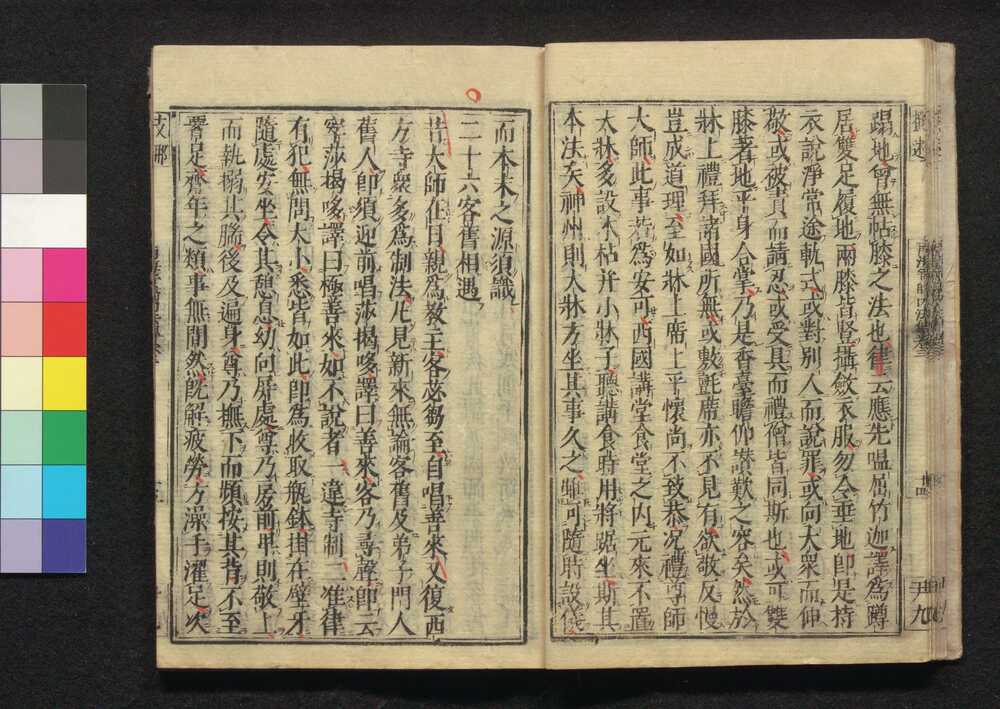 蹋地曾無帖膝之法也律云應先嗢屈竹迦譯爲蹲
居雙足履地兩膝皆竪攝斂衣服勿令垂地即是持
衣說淨常途軌式或對別人而說罪或向大衆而伸
敬或被責而請忍或受具而禮僧皆同斯也或可雙
膝著地平身合掌乃是香臺瞻仰讃歎之容矣然於
牀上禮拜諸國所無或敷氈席亦不見有欲敬反慢
豈成道理至如牀上席上平懷尚不致恭况禮尊師
大師此事若爲安可西國講堂食堂之内元來不置
大牀多設木枮并小牀子聽講食時用將踞坐斯其
本法矣神州則大牀方坐其事久之雖可隨時設儀
而本末之源須識
二十六客舊相遇
昔大師在日親爲教主客苾芻至自唱善來又復西
方寺衆多爲制法凡見新來無論客舊及弟子門人
舊人即須迎前唱莎揭哆譯曰善來客乃尋聲即云
窣莎揭哆譯曰極善來如不說者一違寺制二准律
有犯無問大小悉皆如此即爲收取瓶鉢掛在壁牙
隨處安坐令其憩息幼向屏處尊乃房前卑則敬上
而執搦其腨後及遍身尊乃撫下而頻按其背不至
腰足齊年之類事無間然既解疲勞方澡手濯足次